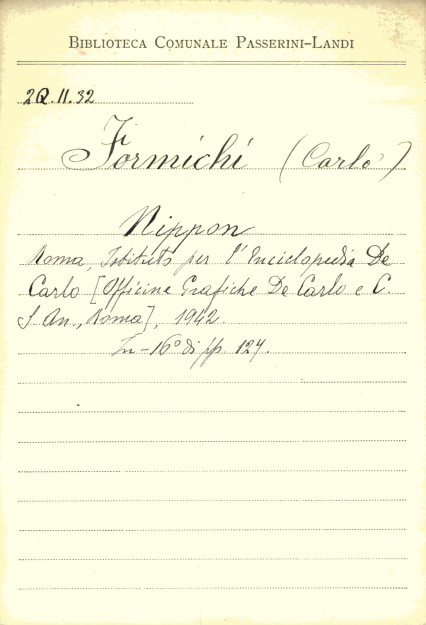 BIBLIOTECA COMUNALE PASSERINI-LANDI
2Q.11.32
Formichi (Carlo)
Nippon
Roma, Istituto per l'Enciclopedia De
Carlo [Officine Grafiche De Carlo e C.
S. An., Roma], 1942.
In-16° di pp. 127.